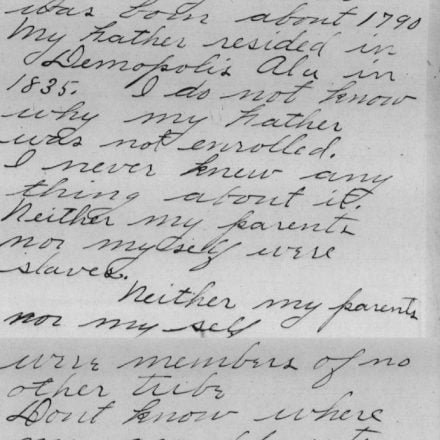 was born about 1790
My father resided in
Demopolis Ala in
1835. I do not know
why my father
was not enrolled.
I never knew any
thing about it.
Neither my parents
nor my self were
slaves.
Neither my parents
nor my self
were members of no
other tribe
Dont know where